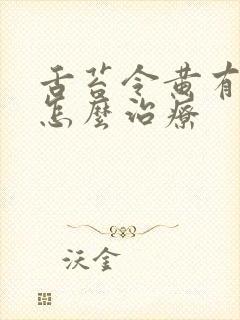 舌苔令黄有
怎麼治療
沃金